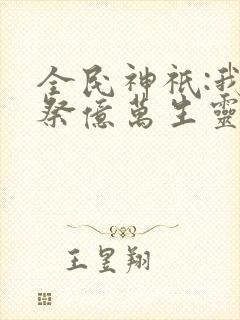 全民神祇:我
祭億萬生靈
王昱翔